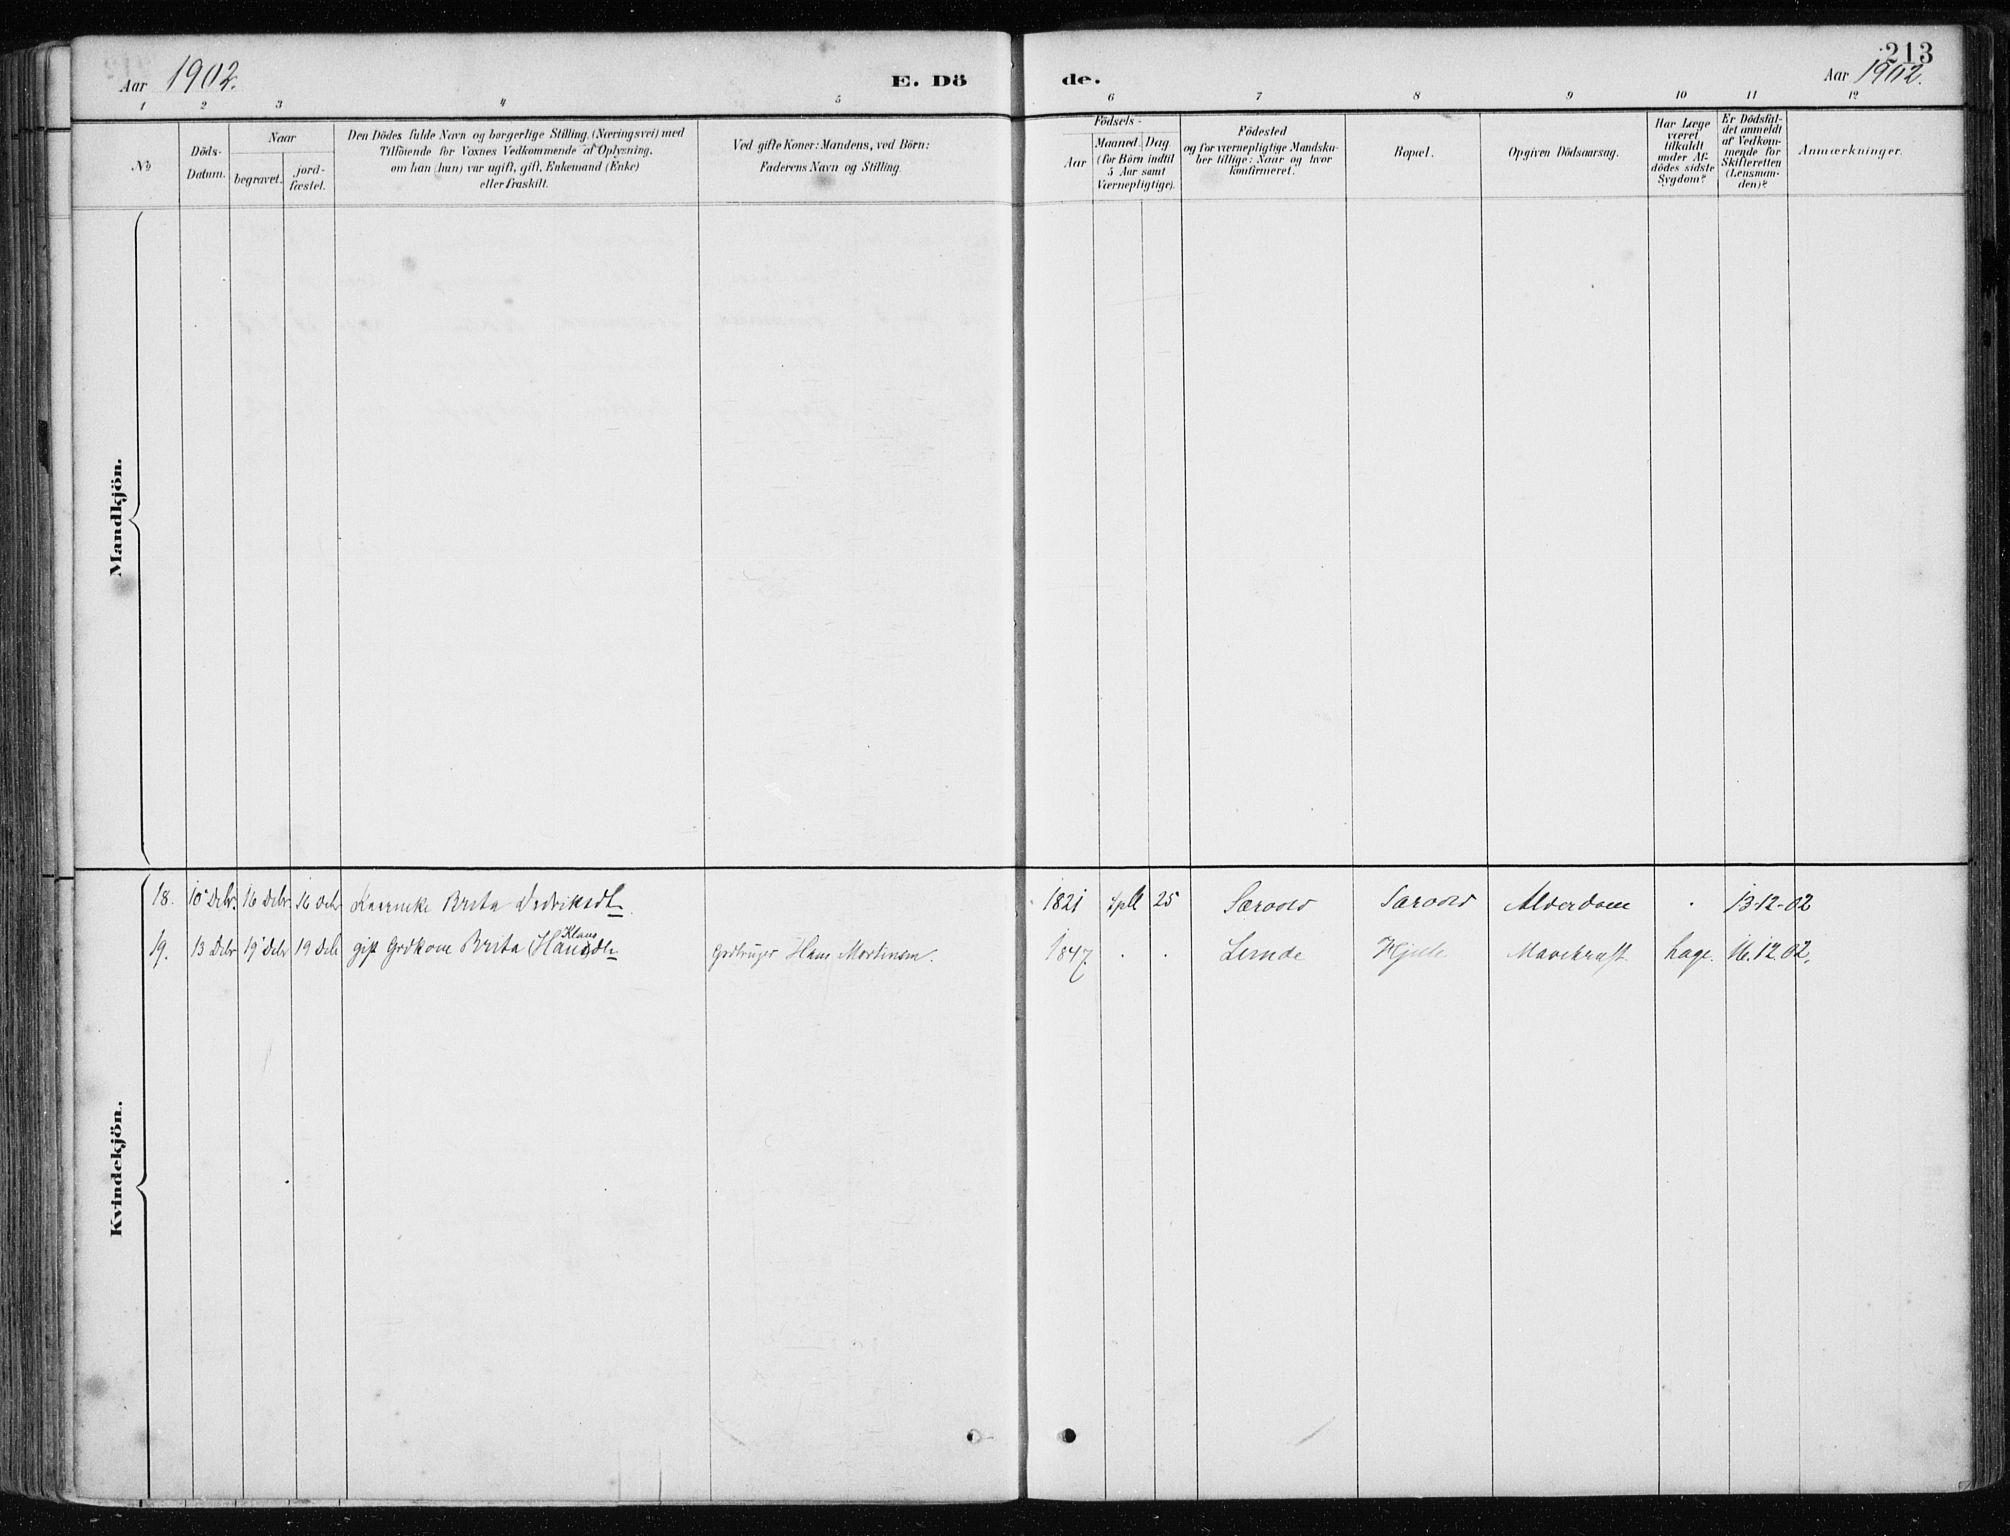 213
Aar 1902. E. Dö de. Aar 1902.
1 2 3 4 5 6 7 8 9 10 11 12
No
Döds-Datum.
Naar
begravet.
jord-fæstet.
Den Dödes fulde Navn og borgerlige Stilling (Næringsvei) med
Tilföiende for Voxnes Vedkommende af Oplysning,
om han (hun) var ugift, gift, Enkemand (Enke)
eller fraskilt.
Ved gifte Koner: Mandens, ved Börn:
Faderens Navn og Stilling.
Födsels-
Aar
Maaned. Dag
(for Börn indtil
5 Aar samt
Værnepligtige).
Födested
og for værnepligtige Mandska-
ber tillige: Naar og hvor
konfirmeret.
Bopæl.
Opgiven Dödsaarsag.
Har Læge
været
tilkaldt
under Af-
dödes sidste
Sygdom?
Er Dödsfal-
det anmeldt
af Vedkom-
mende for
Skifteretten
(Lensman-
den)?
Anmærkninger.
Mandkjön.
18. 10 Dcbr. 16 Dcbr. 16 Dcbr Brita Dedriksdt 1821 Sptb 25 Alderdom . 13-12-02
Klaus
19. 13 Dcbr 19 Dcbr 19 Dcb gift Grdkone Brita (Hansdtr Grdbruger Hans Mortensen. 1847. . . Hjelle Mavekræft Læge. 16.12.02.
Kvindekjön.